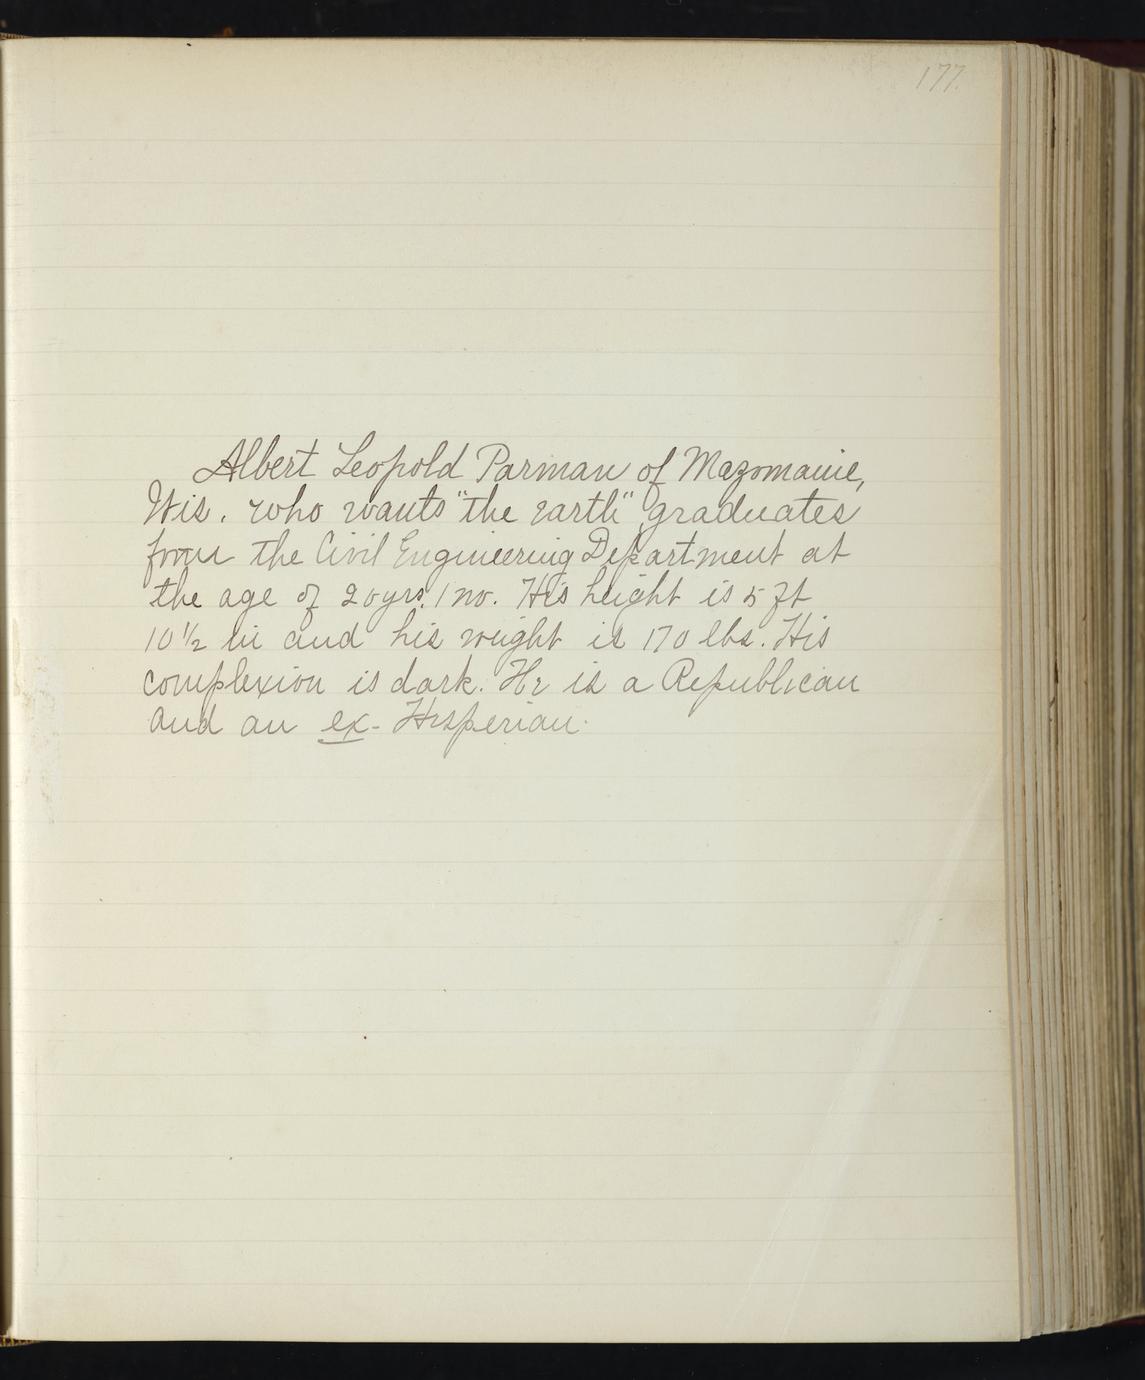 177.
Albert Leopold Parman of Mazomanie,
Wis. who wants "the earth" graduates
from the Civil Engineering Department at
the age of 20 yrs. 1 mo. His height is 5 ft
10 1/2 in and his weight is 170 lbs. His
complexion is dark. He is a Republican
and an ex-Hesperian.